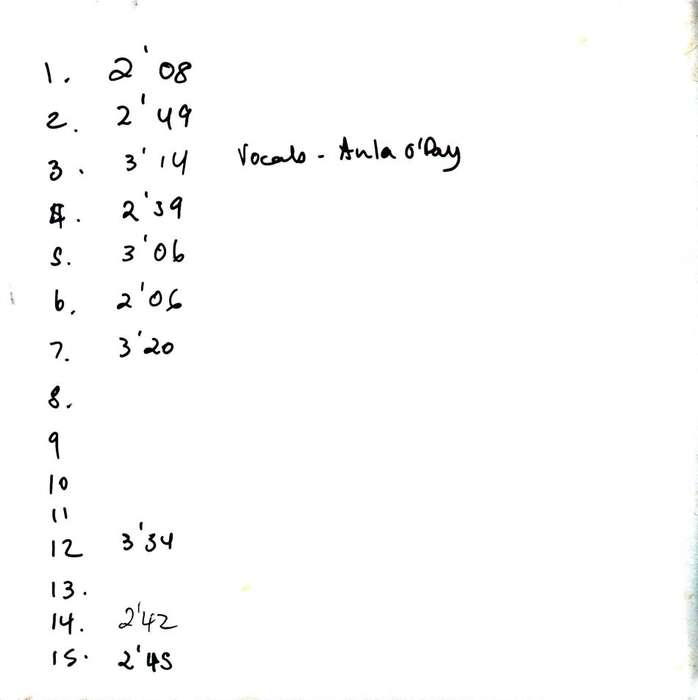 1. 2'08
2. 2'49
3. 3'14 Vocals - Anla O'Day
4. 2'39
5. 3'06
6. 2'06
7. 3'20
8.
9
10
11
12 3'34
13.
14. 2'42
15. 2'45